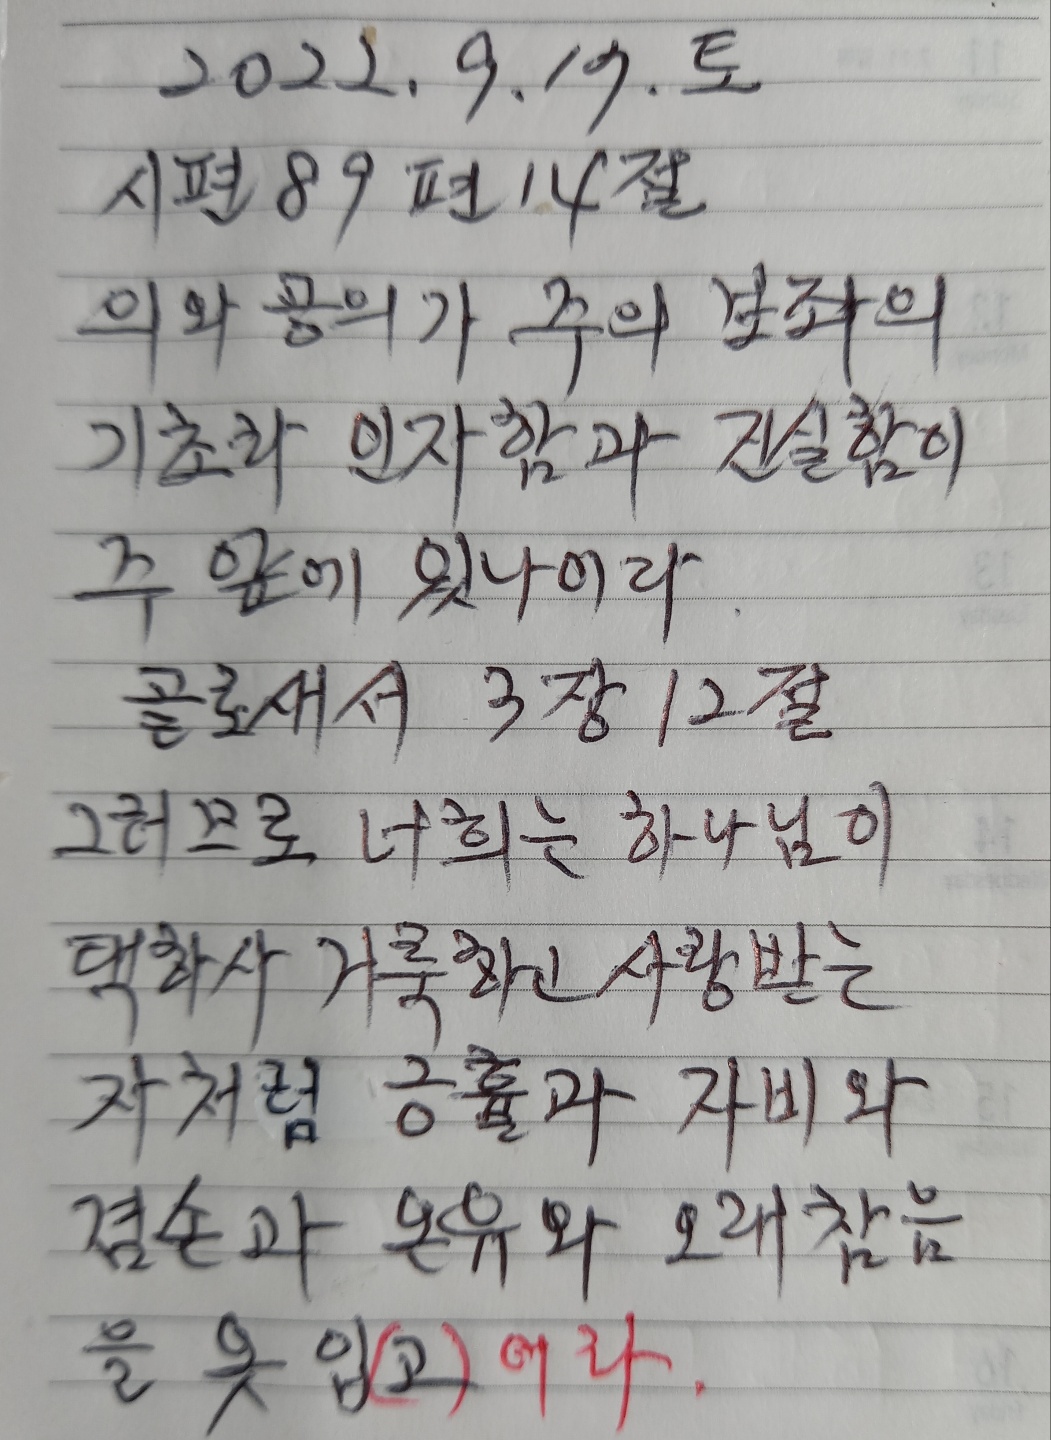 2022. 9. 17. 토
시편 89 편 14절
의와 공의가 주의 보좌의
기초라 인자함과 진실함이
주 앞에 있나이라.
골로새서 3장 12절
그러므로 너희는 하나님이
택하사 거룩하고 사랑받는
자처럼 긍휼과 자비와
겸손과 온유와 오래참음
을 옷 입(고)어라.